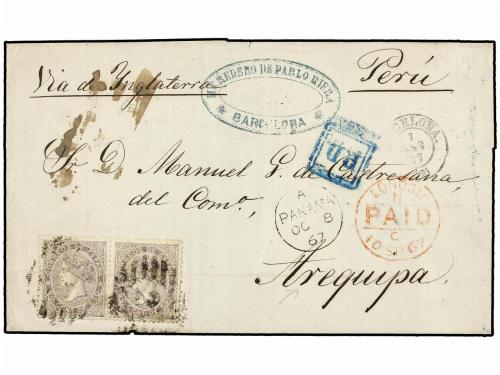 Via d'Inglaterra
Perú
HEREDERO DE PABLO RIERA
* BARCELONA *
BARCELONA.
7
67
P.D.
Sr. D. Manuel G. de Castresana,
del Como,
A
PANAMA
OC 8
67
LONDON
N
PAID
C
10 SP 67
Arequipa.